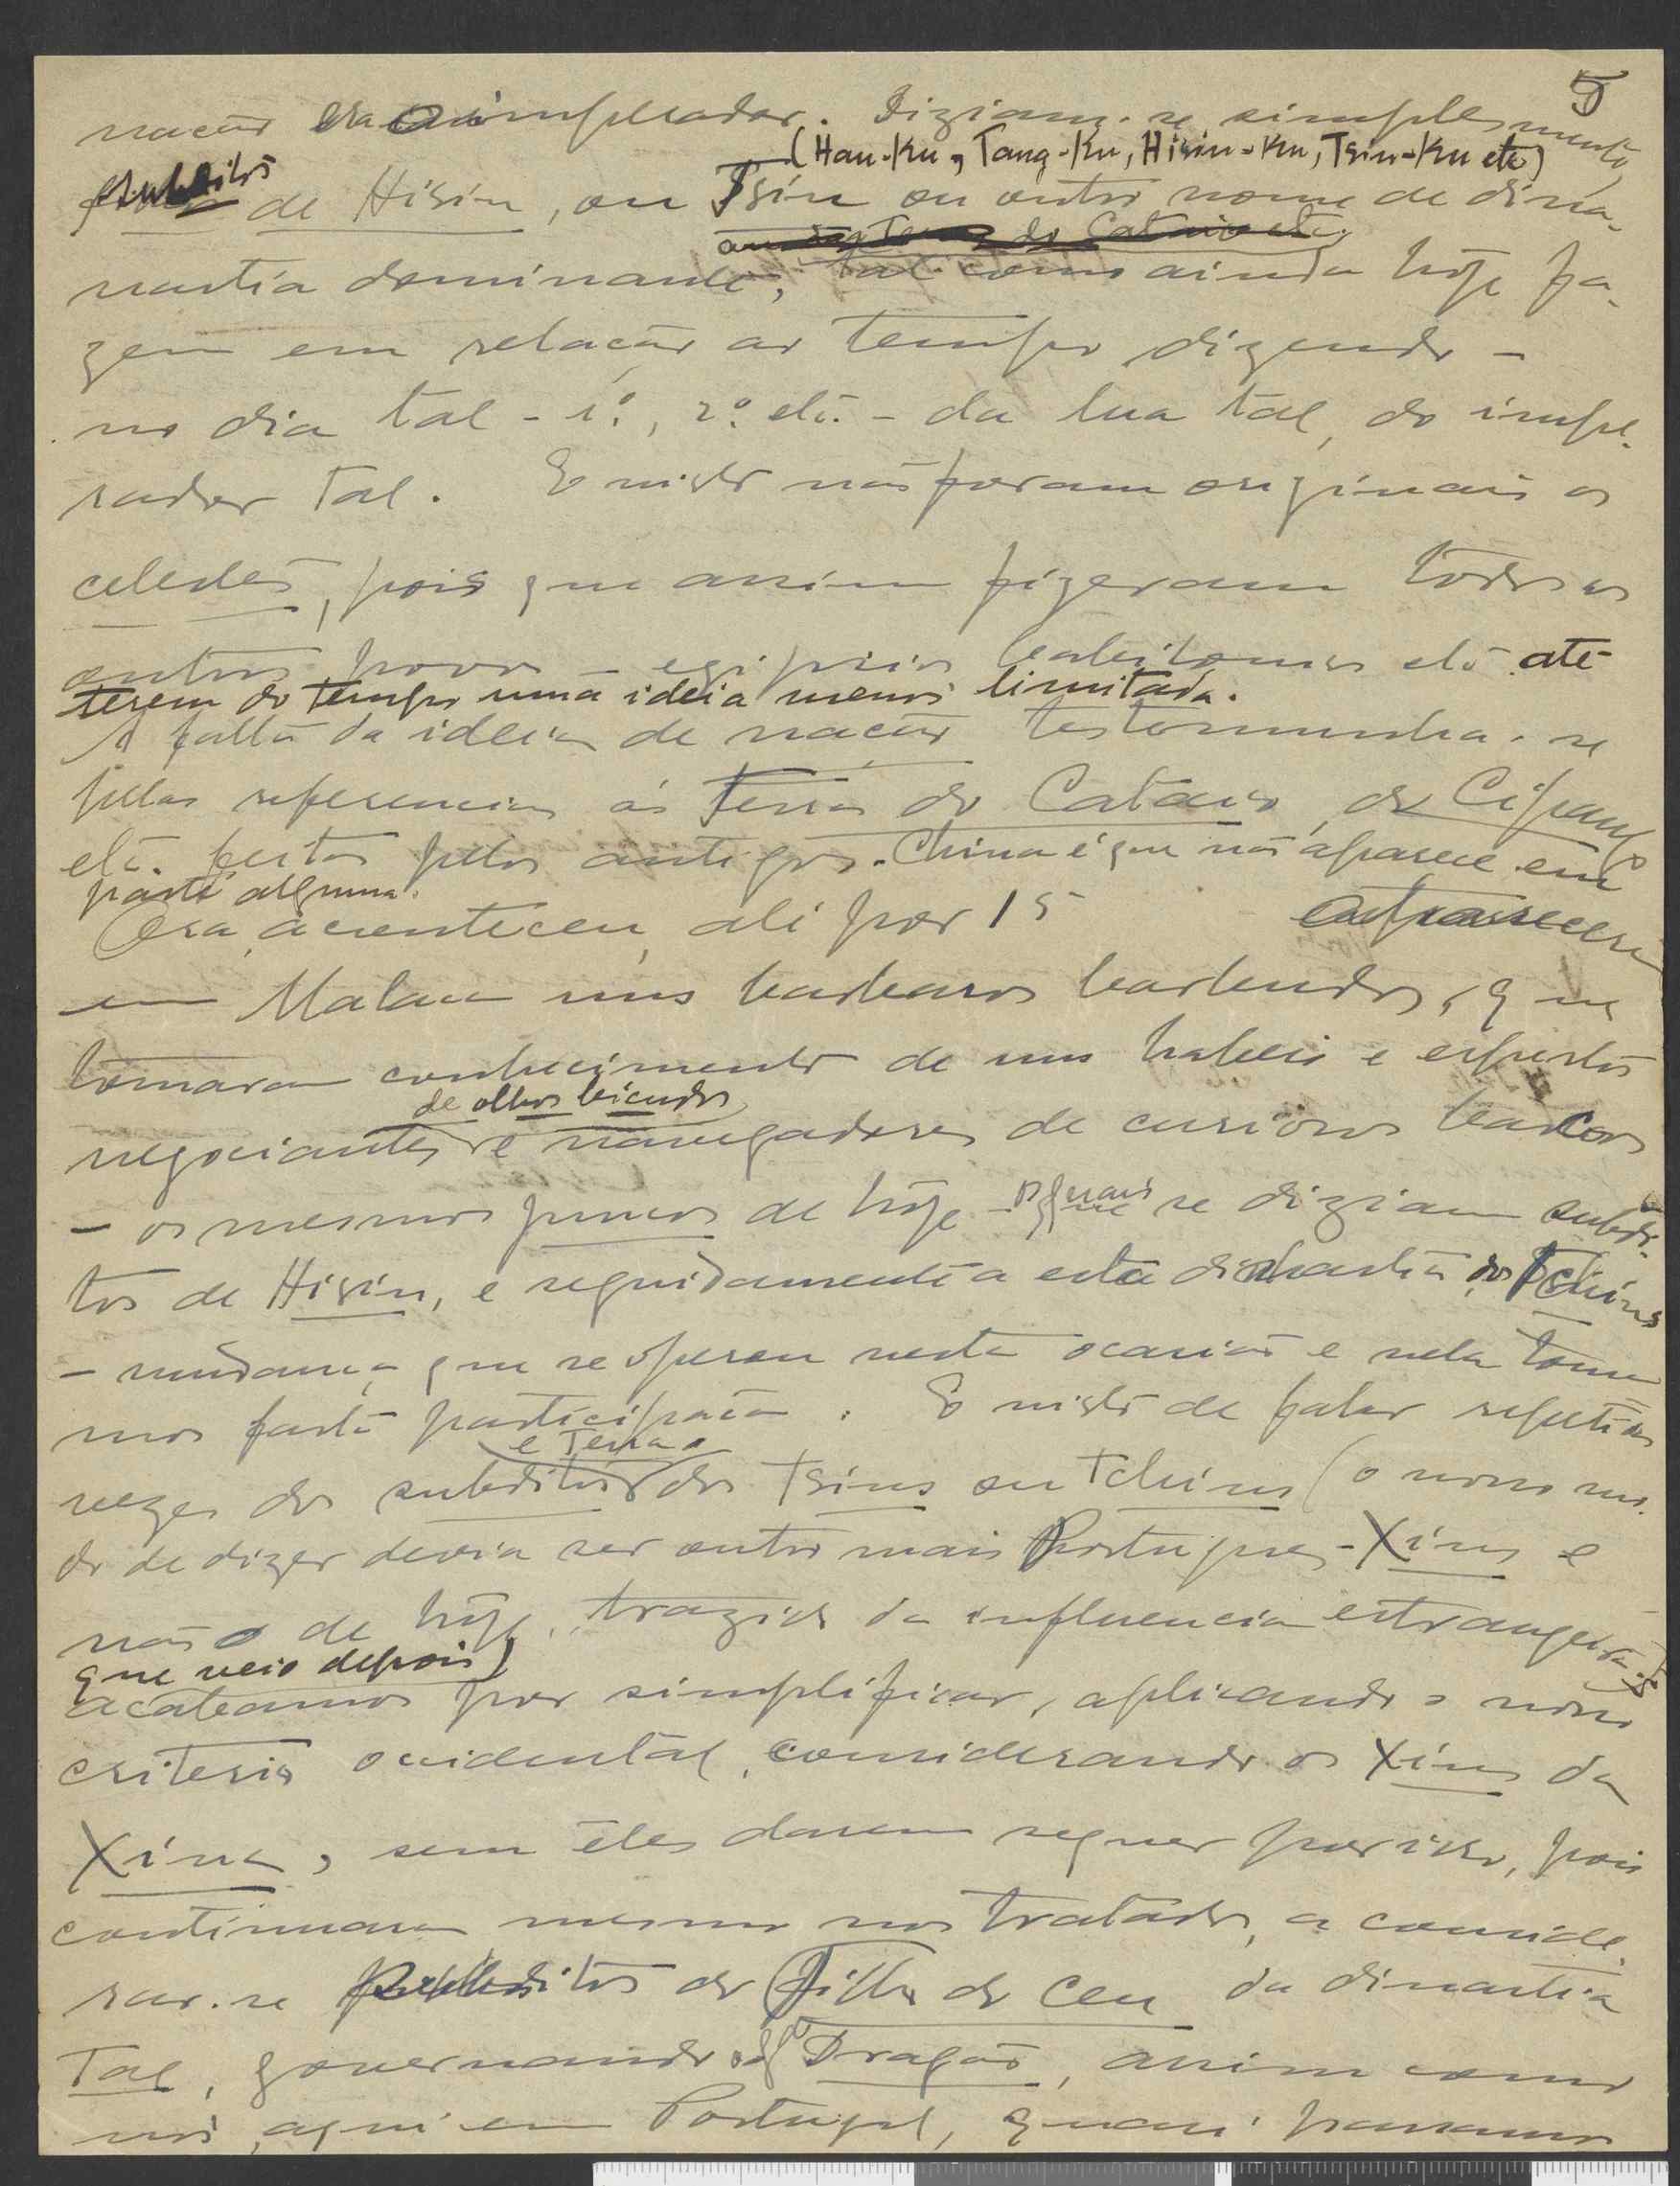 5
nação era o imperador. Diziam-se simplesmente
(Han-Ku, Tang-Ku, Hisin-Ku, Tsin-Ku etc)
subditos de Hisin, ou Tsin ou outro nome de dina-
nastia dominante, tal como ainda hoje fa-
zem em relação ao tempo dizendo -
no dia tal - 1º, 2º etc. - da lua tal, do impe-
rador tal. E nisto não foram originais os
celestes, pois que assim fizeram todos os
outros povos - egipcios babilonios etc. até
terem do tempo uma ideia menos limitada.
A falta da ideia de nação testemunha-se
pelas referencias ás Terras do Cataio, de Cipango
etc. feitas pelos antigos. China é que não aparece em
parte alguma.
Ora, aconteceu, ali por 15 aparecerem
em Malaca uns barbaros barbudos, que
tomaram conhecimento de uns habeis e espertos
de olhos bicudos
negociantes e navegadores de curiosos barcos
- os mesmos juncos de hoje - os quais se diziam subdi-
tos de Hisin, e seguidamente a esta dinastia, dos Tchins
- mudança que se operou nesta ocasião e nela toma-
mos parte participação. E nisto de falar repetidas
e Terras
vezes dos subditos dos Tsins ou Tchins (o nosso mo-
do de dizer devia ser outro mais Portugues - Xins e
não o de hoje, trazido da influencia estrangeira
que veio depois)
acabamos por simplificar, aplicando o nosso
criterio ocidental, considerando os Xins da
Xina, sem êles darem sequer por isso, pois
continuaram mesmo nos tratados, a conside-
rar-se subditos do Filho do Ceu da dinastia
Tal, governando o Dragão, assim como
nós, aqui em Portugal, quasi passamos